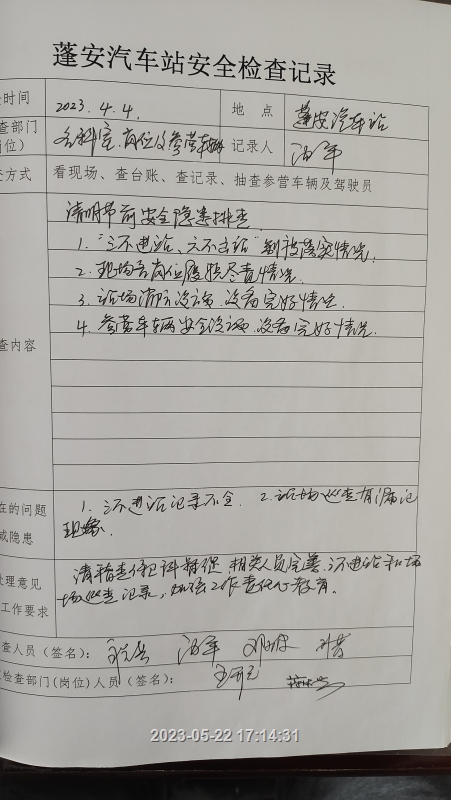 蓬安汽车站安全检查记录
时间 2023.4.4. 地 点 蓬安汽车站
查部门 各科室、岗位及参营车辆 记录人
岗位）
方式 看现场、查台账、查记录、抽查参营车辆及驾驶员
清明节前安全隐患排查
1. "三不进站、六不出站"制度落实情况.
2. 现场各岗位履职尽责情况.
3. 站场消防设施、设备完好情况.
4. 参营车辆安全设施、设备完好情况.
查内容
在的问题 1. 三不进站记录不全. 2. 站场巡查有漏记
或隐患 现象.
处理意见 请稽查科 督促 相关人员完善三不进站和站
工作要求 场巡查记录，加强工作责任心教育.
查人员（签名）：
检查部门(岗位)人员（签名）：
2023-05-22 17:14:31